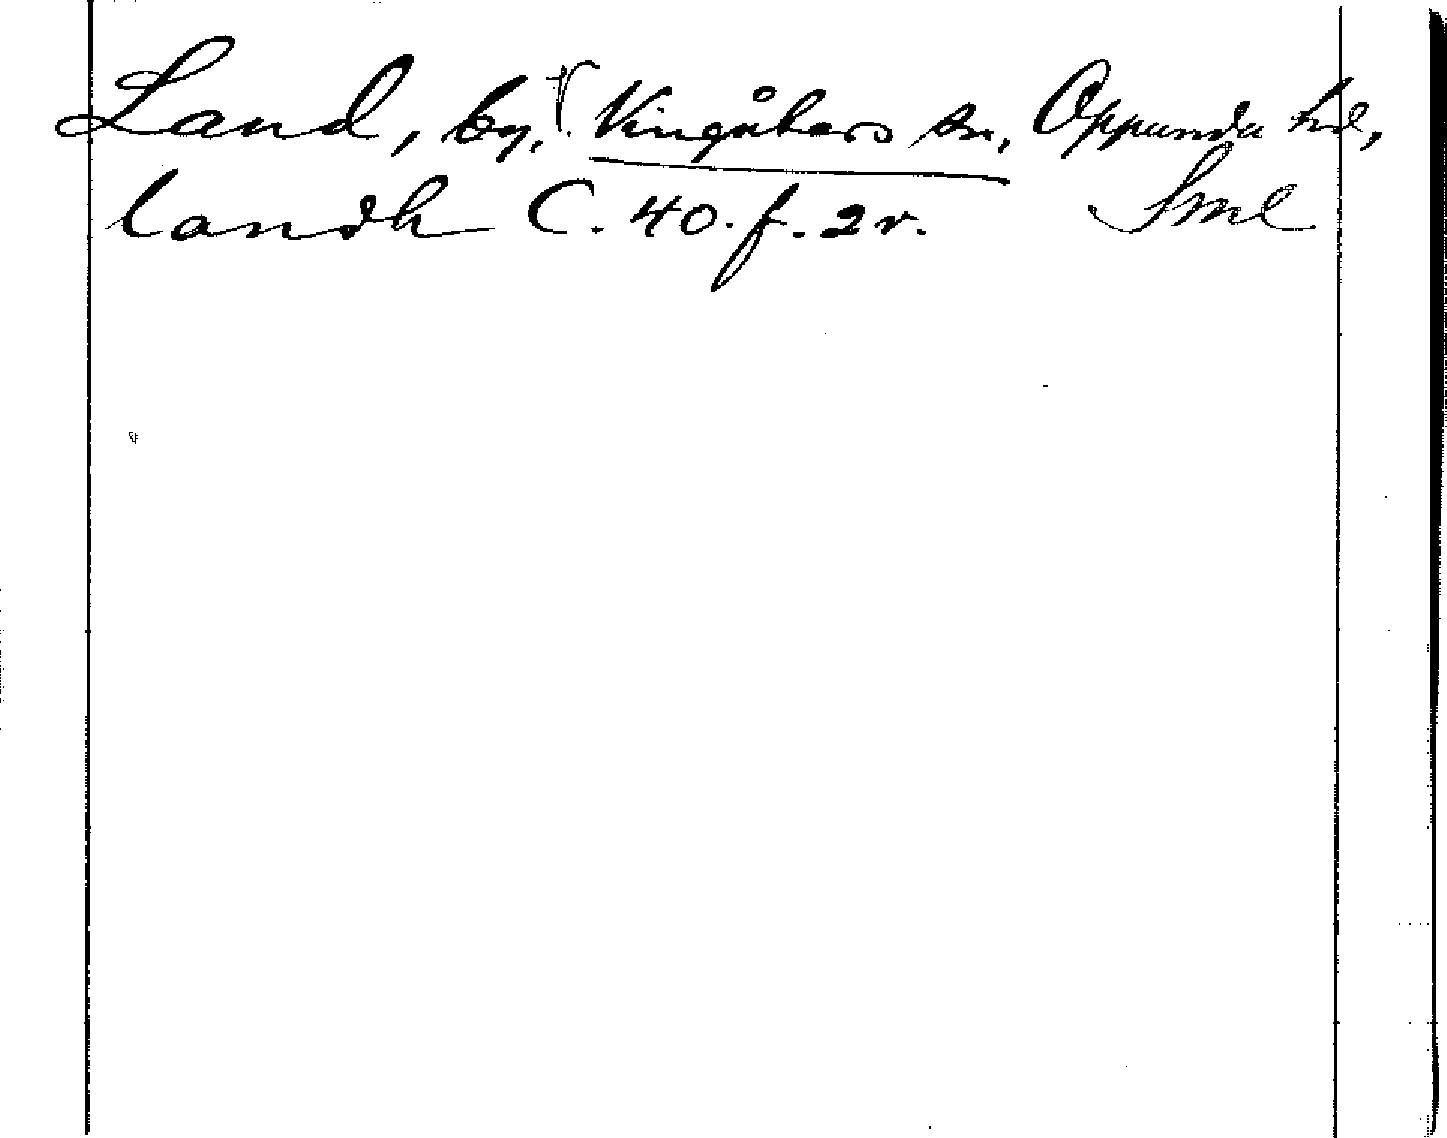 Land, by, V. Vingåkers sn, Oppunda hd,
landh C. 40. f. 2 v. Sml